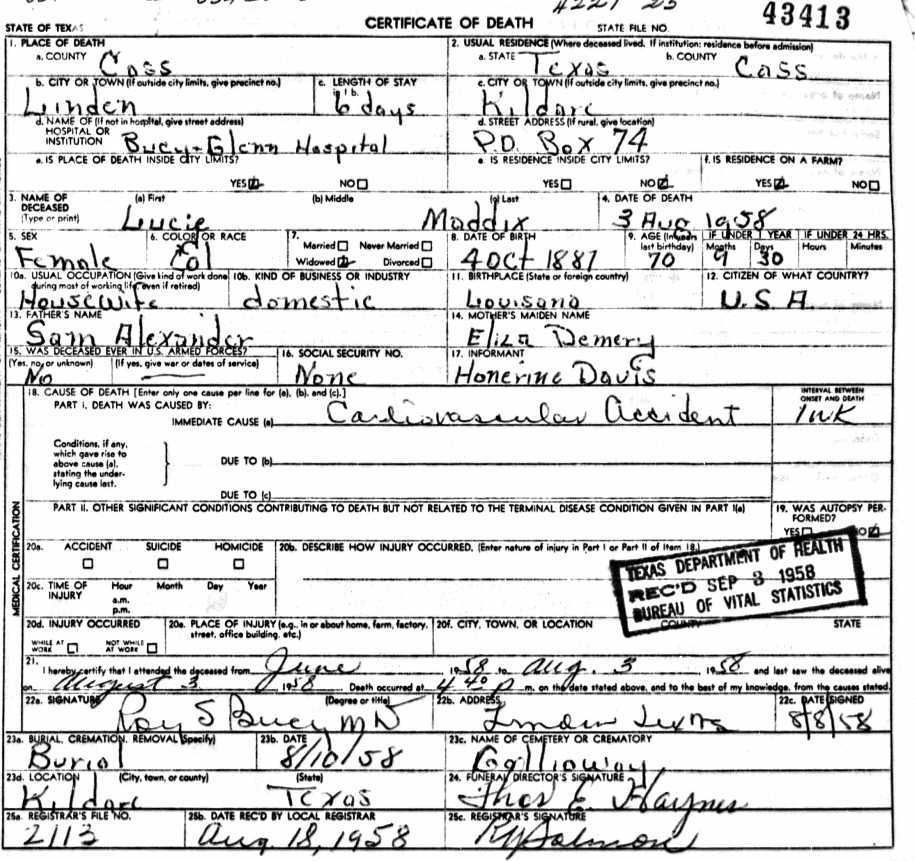 4221 25
43413
STATE OF TEXAS CERTIFICATE OF DEATH STATE FILE NO.
1. PLACE OF DEATH 2. USUAL RESIDENCE (Where deceased lived. If institution: residence before admission)
a. COUNTY Cass a. STATE Texas b. COUNTY Cass
b. CITY OR TOWN (If outside city limits, give precinct no.) c. LENGTH OF STAY c. CITY OR TOWN (If outside city limits, give precinct no.)
Linden 6 days Kildare
d. NAME OF (If not in hospital, give street address) d. STREET ADDRESS (If rural, give location)
HOSPITAL OR INSTITUTION Bucy-Glenn Hospital P.O. Box 74
e. IS PLACE OF DEATH INSIDE CITY LIMITS? e. IS RESIDENCE INSIDE CITY LIMITS? f. IS RESIDENCE ON A FARM?
YES NO YES NO YES NO
3. NAME OF DECEASED (Type or print) (a) First (b) Middle (c) Last 4. DATE OF DEATH
Lucie Maddix 3 Aug 1958
5. SEX 6. COLOR OR RACE 7. Married Never Married 8. DATE OF BIRTH 9. AGE (In years last birthday) IF UNDER 1 YEAR IF UNDER 24 HRS.
Widowed Divorced Months Days Hours Minutes
Female Col 4 Oct 1887 70 9 30
10a. USUAL OCCUPATION (Give kind of work done during most of working life, even if retired) 10b. KIND OF BUSINESS OR INDUSTRY 11. BIRTHPLACE (State or foreign country) 12. CITIZEN OF WHAT COUNTRY?
Housewife domestic Louisana U.S.A.
13. FATHER'S NAME 14. MOTHER'S MAIDEN NAME
Sam Alexander Eliza Demery
15. WAS DECEASED EVER IN U.S. ARMED FORCES? 16. SOCIAL SECURITY NO. 17. INFORMANT
(Yes, no, or unknown) (If yes, give war or dates of service)
No None Honerine Davis
18. CAUSE OF DEATH [Enter only one cause per line for (a), (b), and (c).] INTERVAL BETWEEN ONSET AND DEATH
PART I. DEATH WAS CAUSED BY:
IMMEDIATE CAUSE (a) Cardiovascular Accident
Conditions, if any, which gave rise to above cause (a), stating the underlying cause last.
DUE TO (b)
DUE TO (c)
MEDICAL CERTIFICATION
PART II. OTHER SIGNIFICANT CONDITIONS CONTRIBUTING TO DEATH BUT NOT RELATED TO THE TERMINAL DISEASE CONDITION GIVEN IN PART I(a) 19. WAS AUTOPSY PERFORMED?
YES NO
20a. ACCIDENT SUICIDE HOMICIDE 20b. DESCRIBE HOW INJURY OCCURRED. (Enter nature of injury in Part I or Part II of Item 18.)
TEXAS DEPARTMENT OF HEALTH
REC'D SEP 3 1958
BUREAU OF VITAL STATISTICS
20c. TIME OF INJURY Hour Month Day Year
a.m.
p.m.
20d. INJURY OCCURRED 20e. PLACE OF INJURY (e.g., in or about home, farm, factory, street, office building, etc.) 20f. CITY, TOWN, OR LOCATION COUNTY STATE
WHILE AT WORK NOT WHILE AT WORK
21. I hereby certify that I attended the deceased from June 1958 to Aug. 3 1958 and last saw the deceased alive
on August 3 1958 Death occurred at 4:40 p m. on the date stated above, and to the best of my knowledge, from the causes stated.
22a. SIGNATURE (Degree or title) 22b. ADDRESS 22c. DATE SIGNED
Roy S Bucy MD Linden Texas 8/8/58
23a. BURIAL, CREMATION, REMOVAL (Specify) 23b. DATE 23c. NAME OF CEMETERY OR CREMATORY
Burial 8/10/58
23d. LOCATION (City, town, or county) (State) 24. FUNERAL DIRECTOR'S SIGNATURE
Kildare Texas Thos E. Haynes
25a. REGISTRAR'S FILE NO. 25b. DATE REC'D BY LOCAL REGISTRAR 25c. REGISTRAR'S SIGNATURE
2113 Aug 18, 1958